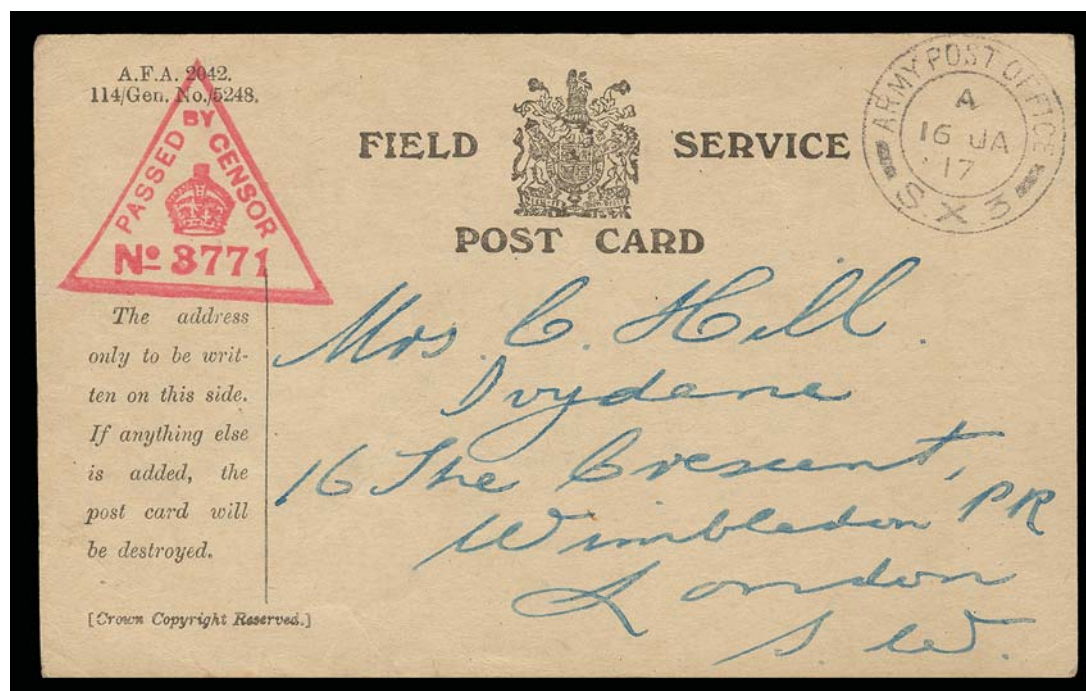 A.F.A. 2042.
114/Gen. No./5248.
PASSED BY CENSOR
No 3771
FIELD SERVICE
POST CARD
ARMY POST OFFICE
A
16 JA
17
S.X.3
The address
only to be writ-
ten on this side.
If anything else
is added, the
post card will
be destroyed.
[Crown Copyright Reserved.]
Mrs. C. Hill.
Ivydene
16 The Crescent,
Wimbledon PK
London
S. W.